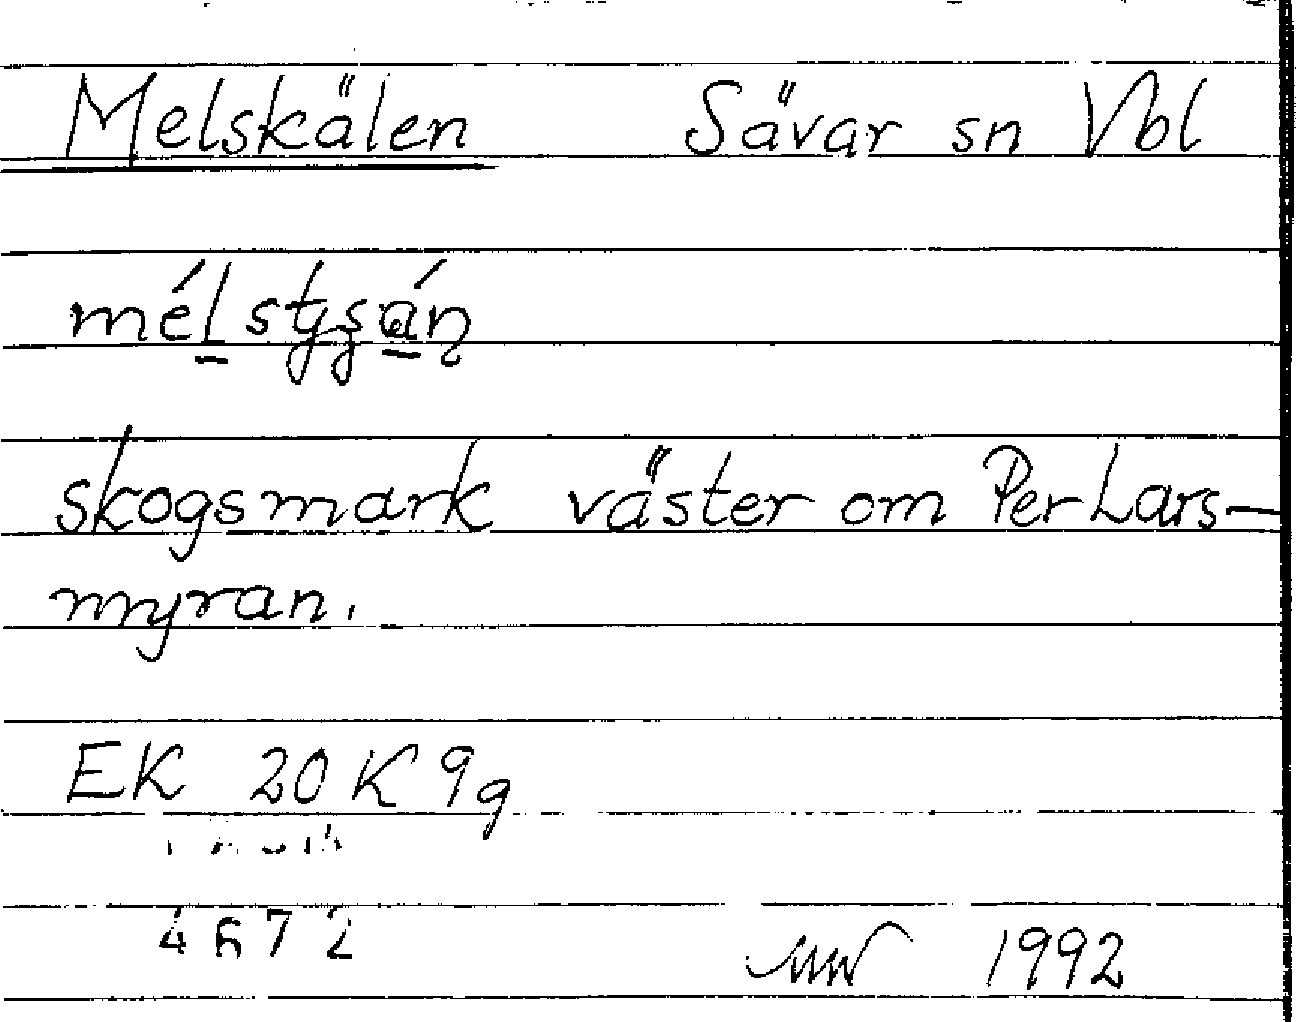 Melskälen Sävar sn Vbl
skogsmark väster om Per Lars-
myran.
EK 20 K 9g
4672
1992